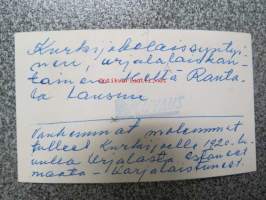 Kurkijokolaissynty-
nen, urjalalaiskan-
tainen Ranta-
la Lausuu
Vanhemmat molemmat
tulleet Kurkijoelle 1920-lu-
vulla Urjalasta ostaneet
maata - Karjalaistuneet.